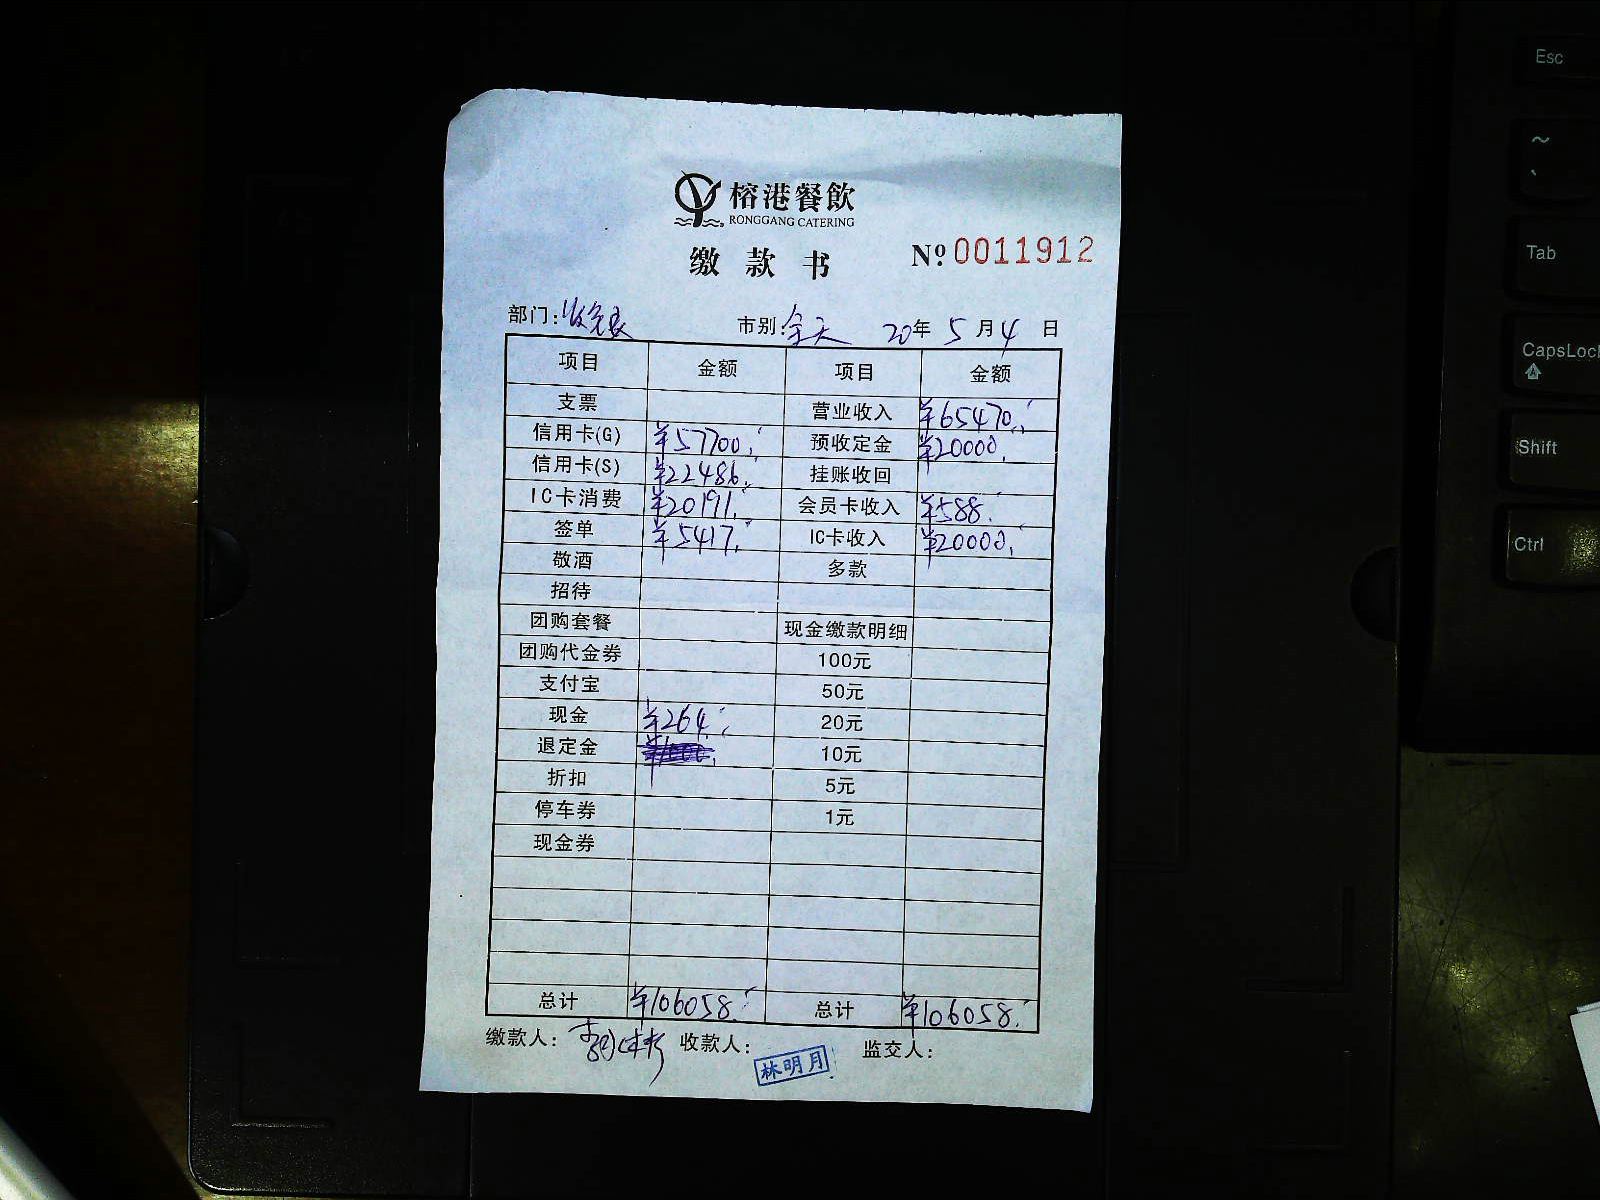 榕港餐飲
RONGGANG CATERING
缴款书
Nº 0011912
部门: 收银 市别: 全天 20年 5月 4日
项目 金额 项目 金额
支票 营业收入 ¥65470.
信用卡(G) ¥57700. 预收定金 ¥20000.
信用卡(S) ¥22486. 挂账收回
IC卡消费 ¥20191. 会员卡收入 ¥588.
签单 ¥5417. IC卡收入 ¥20000.
敬酒 多款
招待
团购套餐 现金缴款明细
团购代金券 100元
支付宝 50元
现金 ¥264. 20元
退定金 ¥1000. 10元
折扣 5元
停车券 1元
现金券
总计 ¥106058. 总计 ¥106058.
缴款人: 收款人: 林明月 监交人:
Esc
~
Tab
CapsLoc
Shift
Ctrl